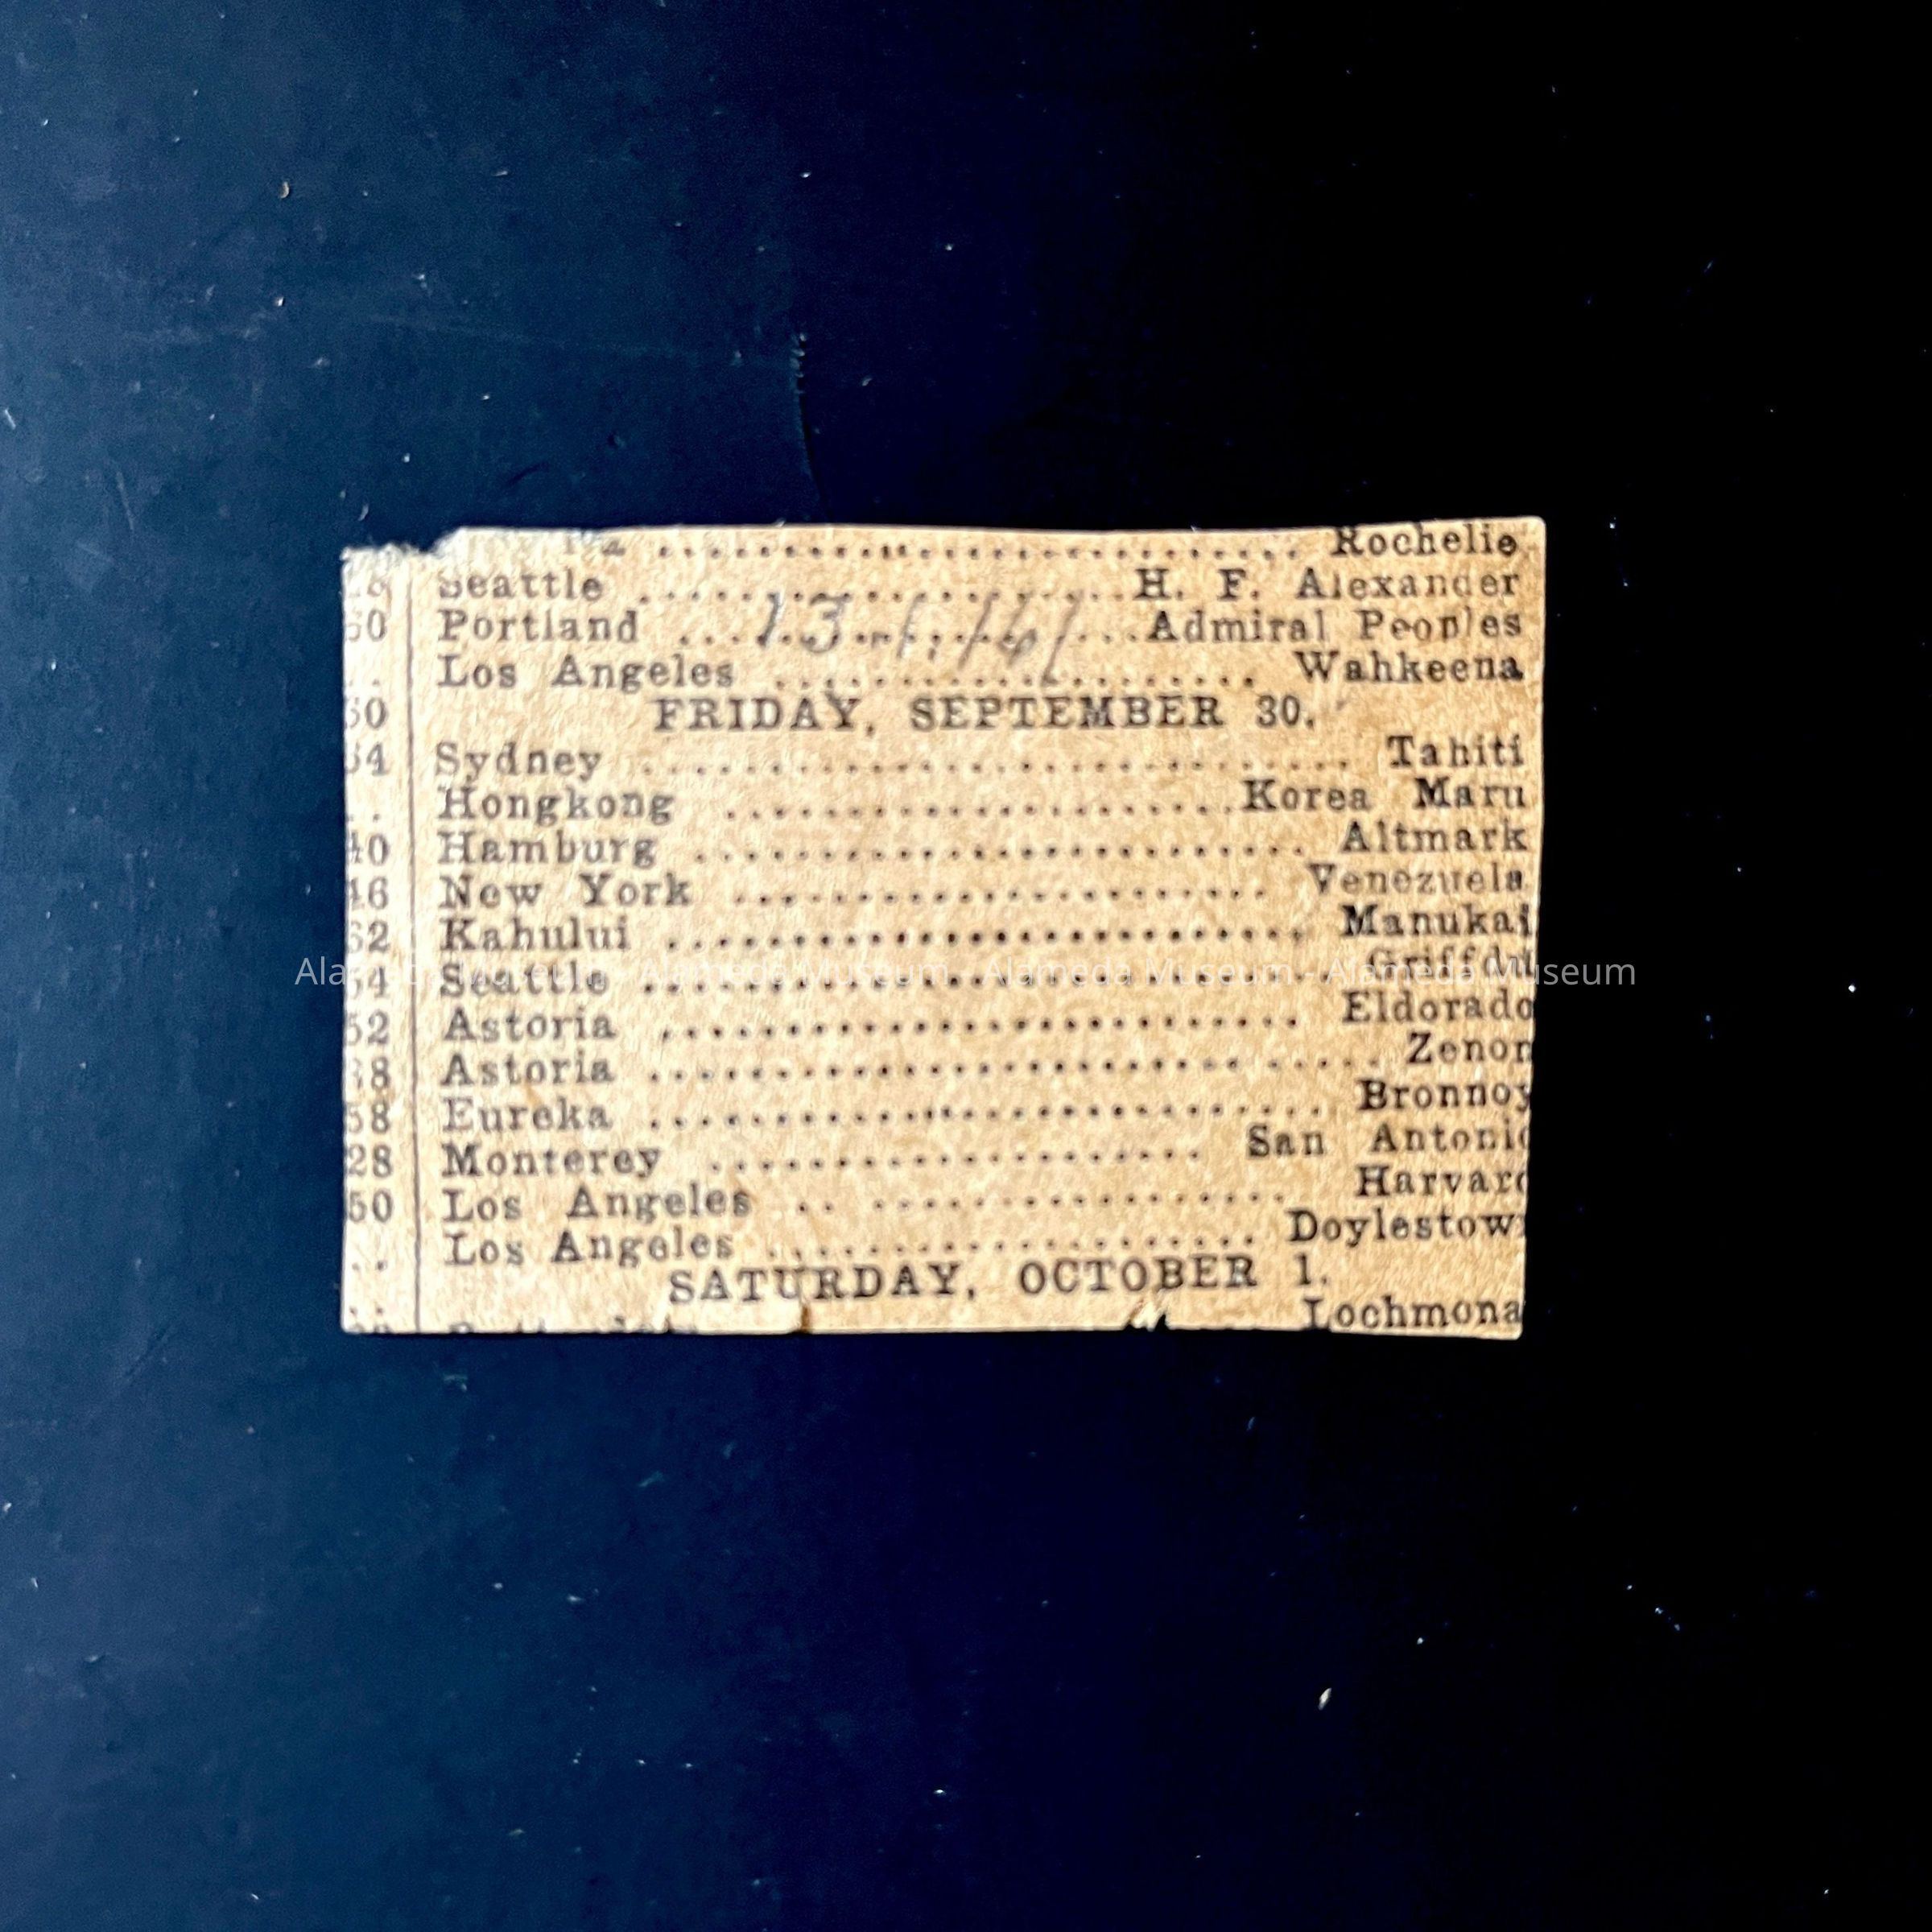 Rochelie
Seattle ........................ H. F. Alexander
50 Portland ........................ Admiral Peoples
Los Angeles ........................ Wahkeena
50 FRIDAY, SEPTEMBER 30.
54 Sydney ........................ Tahiti
.. Hongkong ........................ Korea Maru
40 Hamburg ........................ Altmark
46 New York ........................ Venezuela
62 Kahului ........................ Manukai
54 Seattle ........................ Griffdu
52 Astoria ........................ Eldorado
Astoria ........................ Zenon
58 Eureka ........................ Bronnoy
28 Monterey ........................ San Antonio
50 Los Angeles .. ........................ Harvard
.. Los Angeles ........................ Doylestow
.. SATURDAY, OCTOBER 1.
Lochmona
13-1.161
Alameda Museum - Alameda Museum - Alameda Museum - Alameda Museum